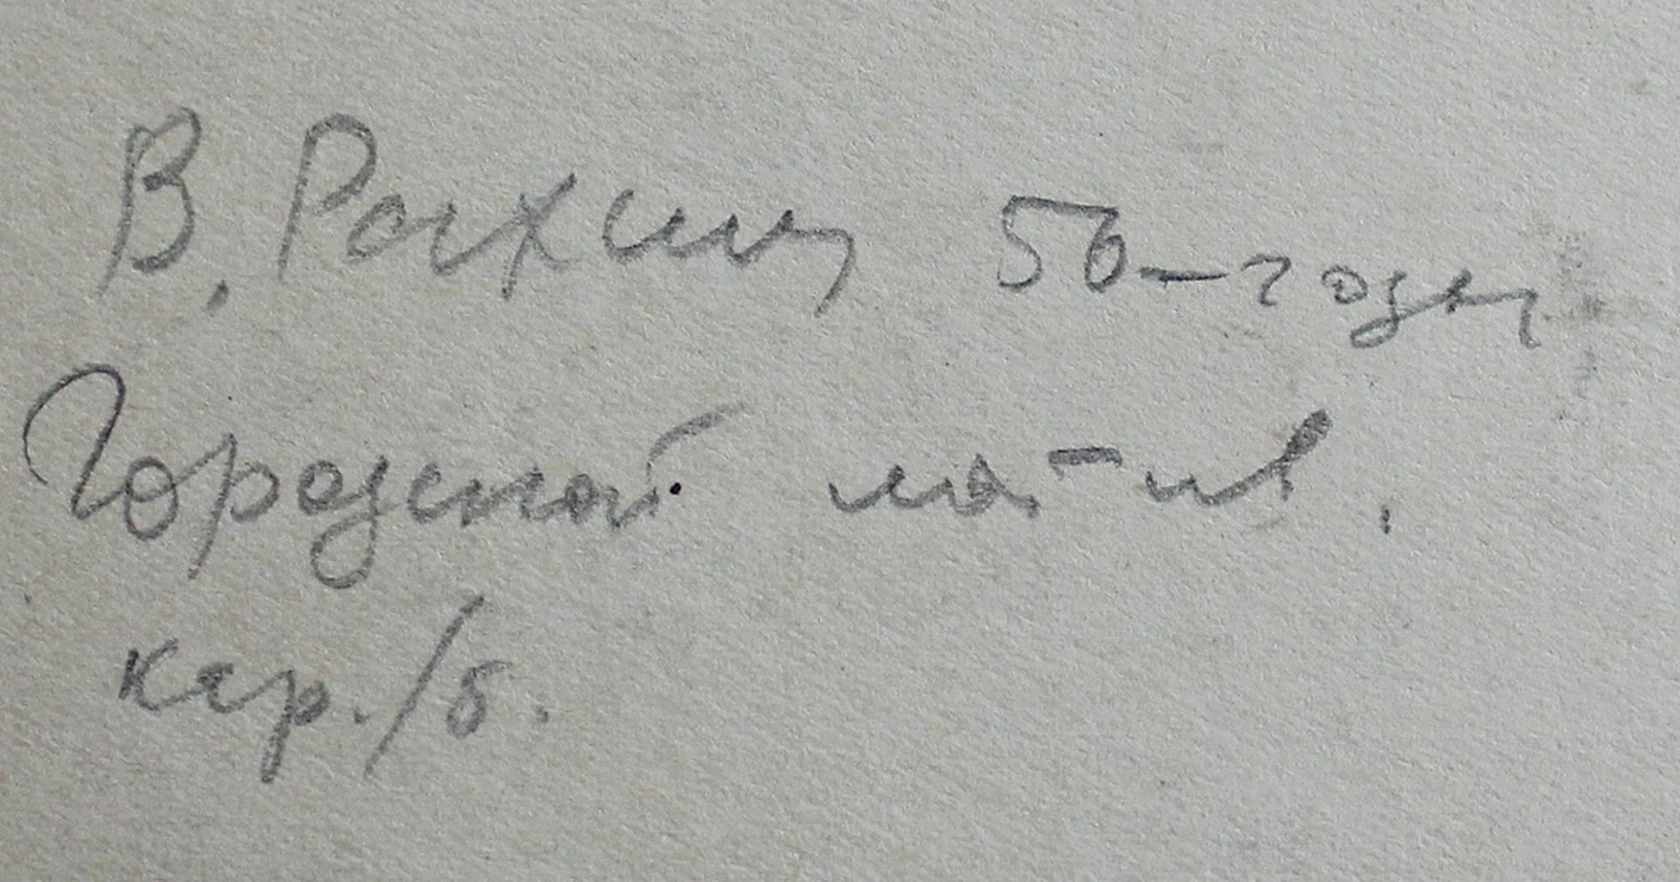 В. Рахина, 50-годы.
Городской мотив.
кар./б.